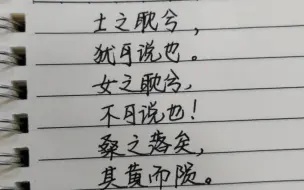 士之耽兮，
犹可说也。
女之耽兮，
不可说也！
桑之落矣，
其黄而陨。